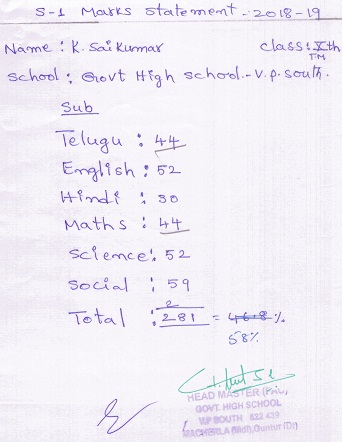 S-1 Marks statement - 2018-19
Name : K. Sai Kumar class : Xth
TM
School : Govt High school - V.P. South.
Sub
Telugu : 44
English : 52
Hindi : 30
Maths : 44
Science : 52
Social : 59
2
Total : 281 = 46.8 %
58%
HEAD MASTER
GOVT. HIGH SCHOOL
V.P SOUTH 522 439
MACHERLA (Md), Guntur (Dt)